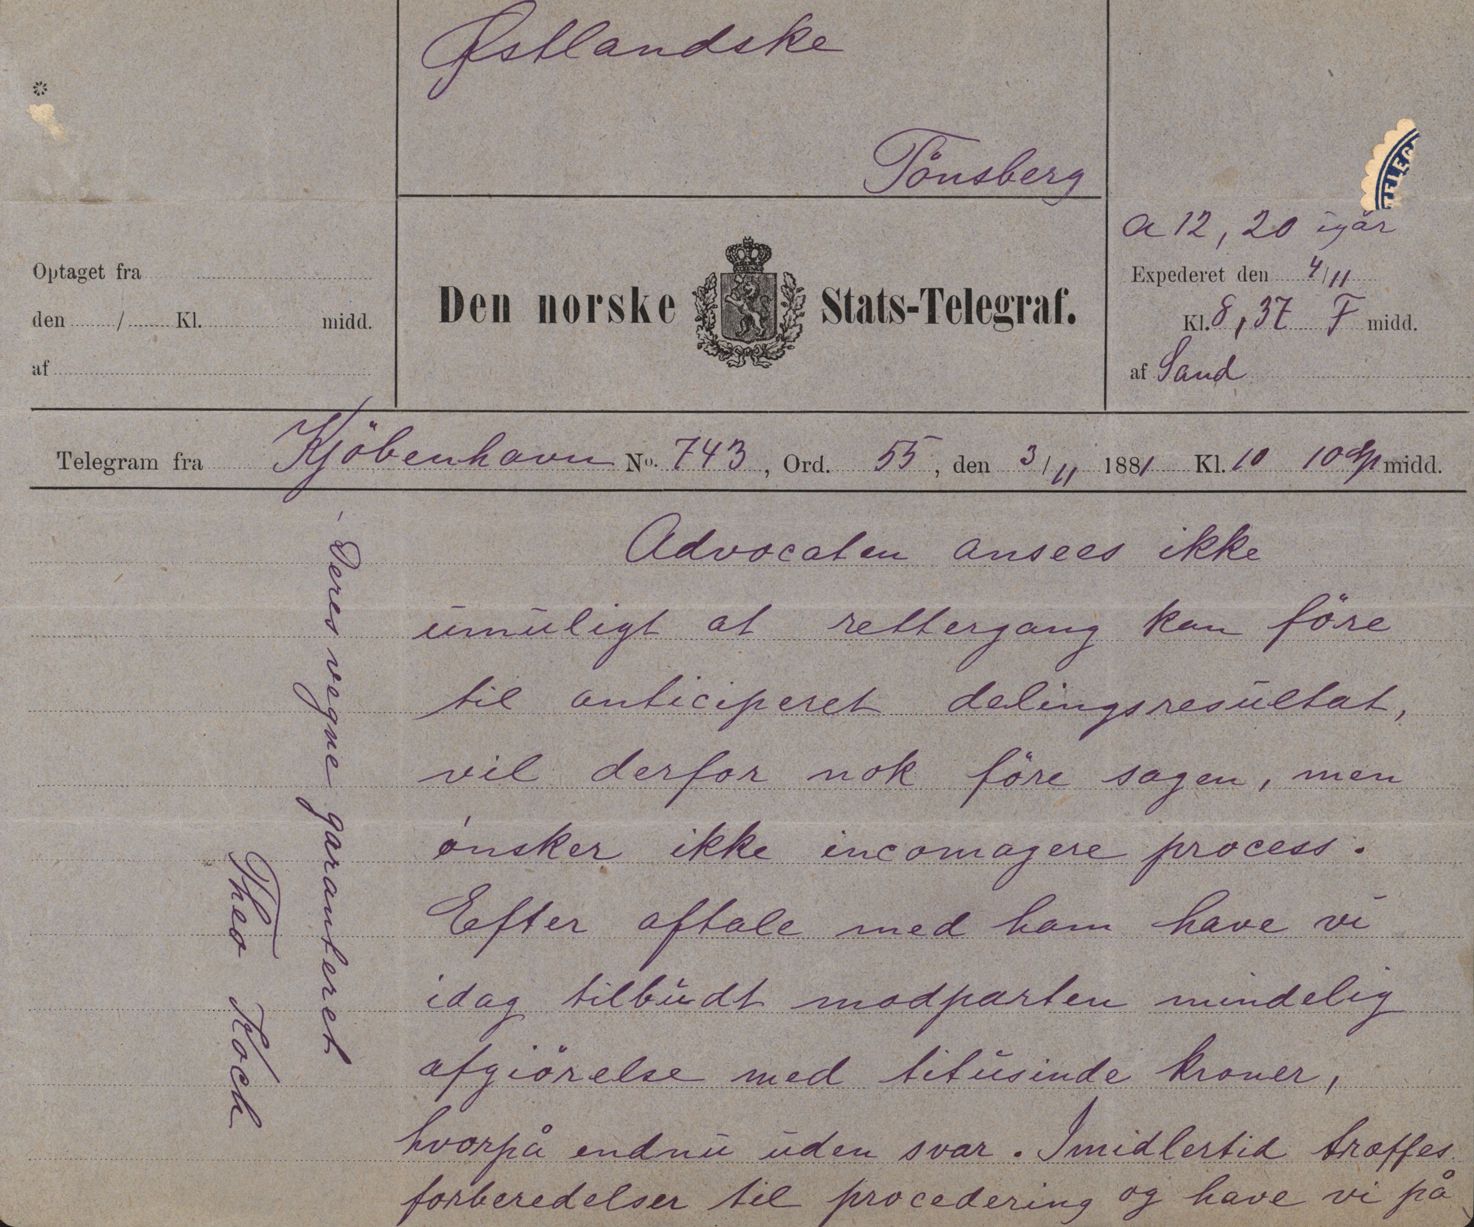 Østlandske
Tönsberg
TELEG
a 12,20 igår
Optaget fra
den / Kl. midd.
af
Den norske Stats-Telegraf.
Expederet den 4/11
Kl. 8,37 F midd.
af Sand
Telegram fra Kjöbenhavn No. 743, Ord. 55, den 3/11 1881 Kl. 10 10 midd.
Advocaten ansees ikke
umuligt at rettergang kan före
til anticiperet delingsresultat,
vil derfor nok före sagen, men
ónsker ikke incomagere process.
Efter aftale med ham have vi
idag tilbudt modparten mindelig
afgiörelse med titusinde kroner,
hvorpå endnu uden svar. Imidlertid træffes
forberedelser til procedering og have vi på
Deres vegne garanteret
Theo Koch